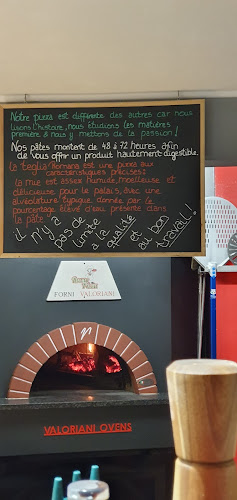 Notre pizza est différente des autres car nous
lisons l'histoire, nous étudions les matières
première & nous y mettons de la passion!
Nos pâtes montent de 48 à 72 heures afin
de vous offrir un produit hautement digestible.
la teglia Romana est une pizza aux
caractéristiques précises:
la mie est assez humide, moelleuse et
délicieuse pour le palais, avec une
alvéolature typique, donnée par le
pourcentage élevé d'eau présente dans
la pâte
il n'y a
pas de
limite
à la
qualité
et au bon
travail!
FORNI VALORIANI
VALORIANI OVENS